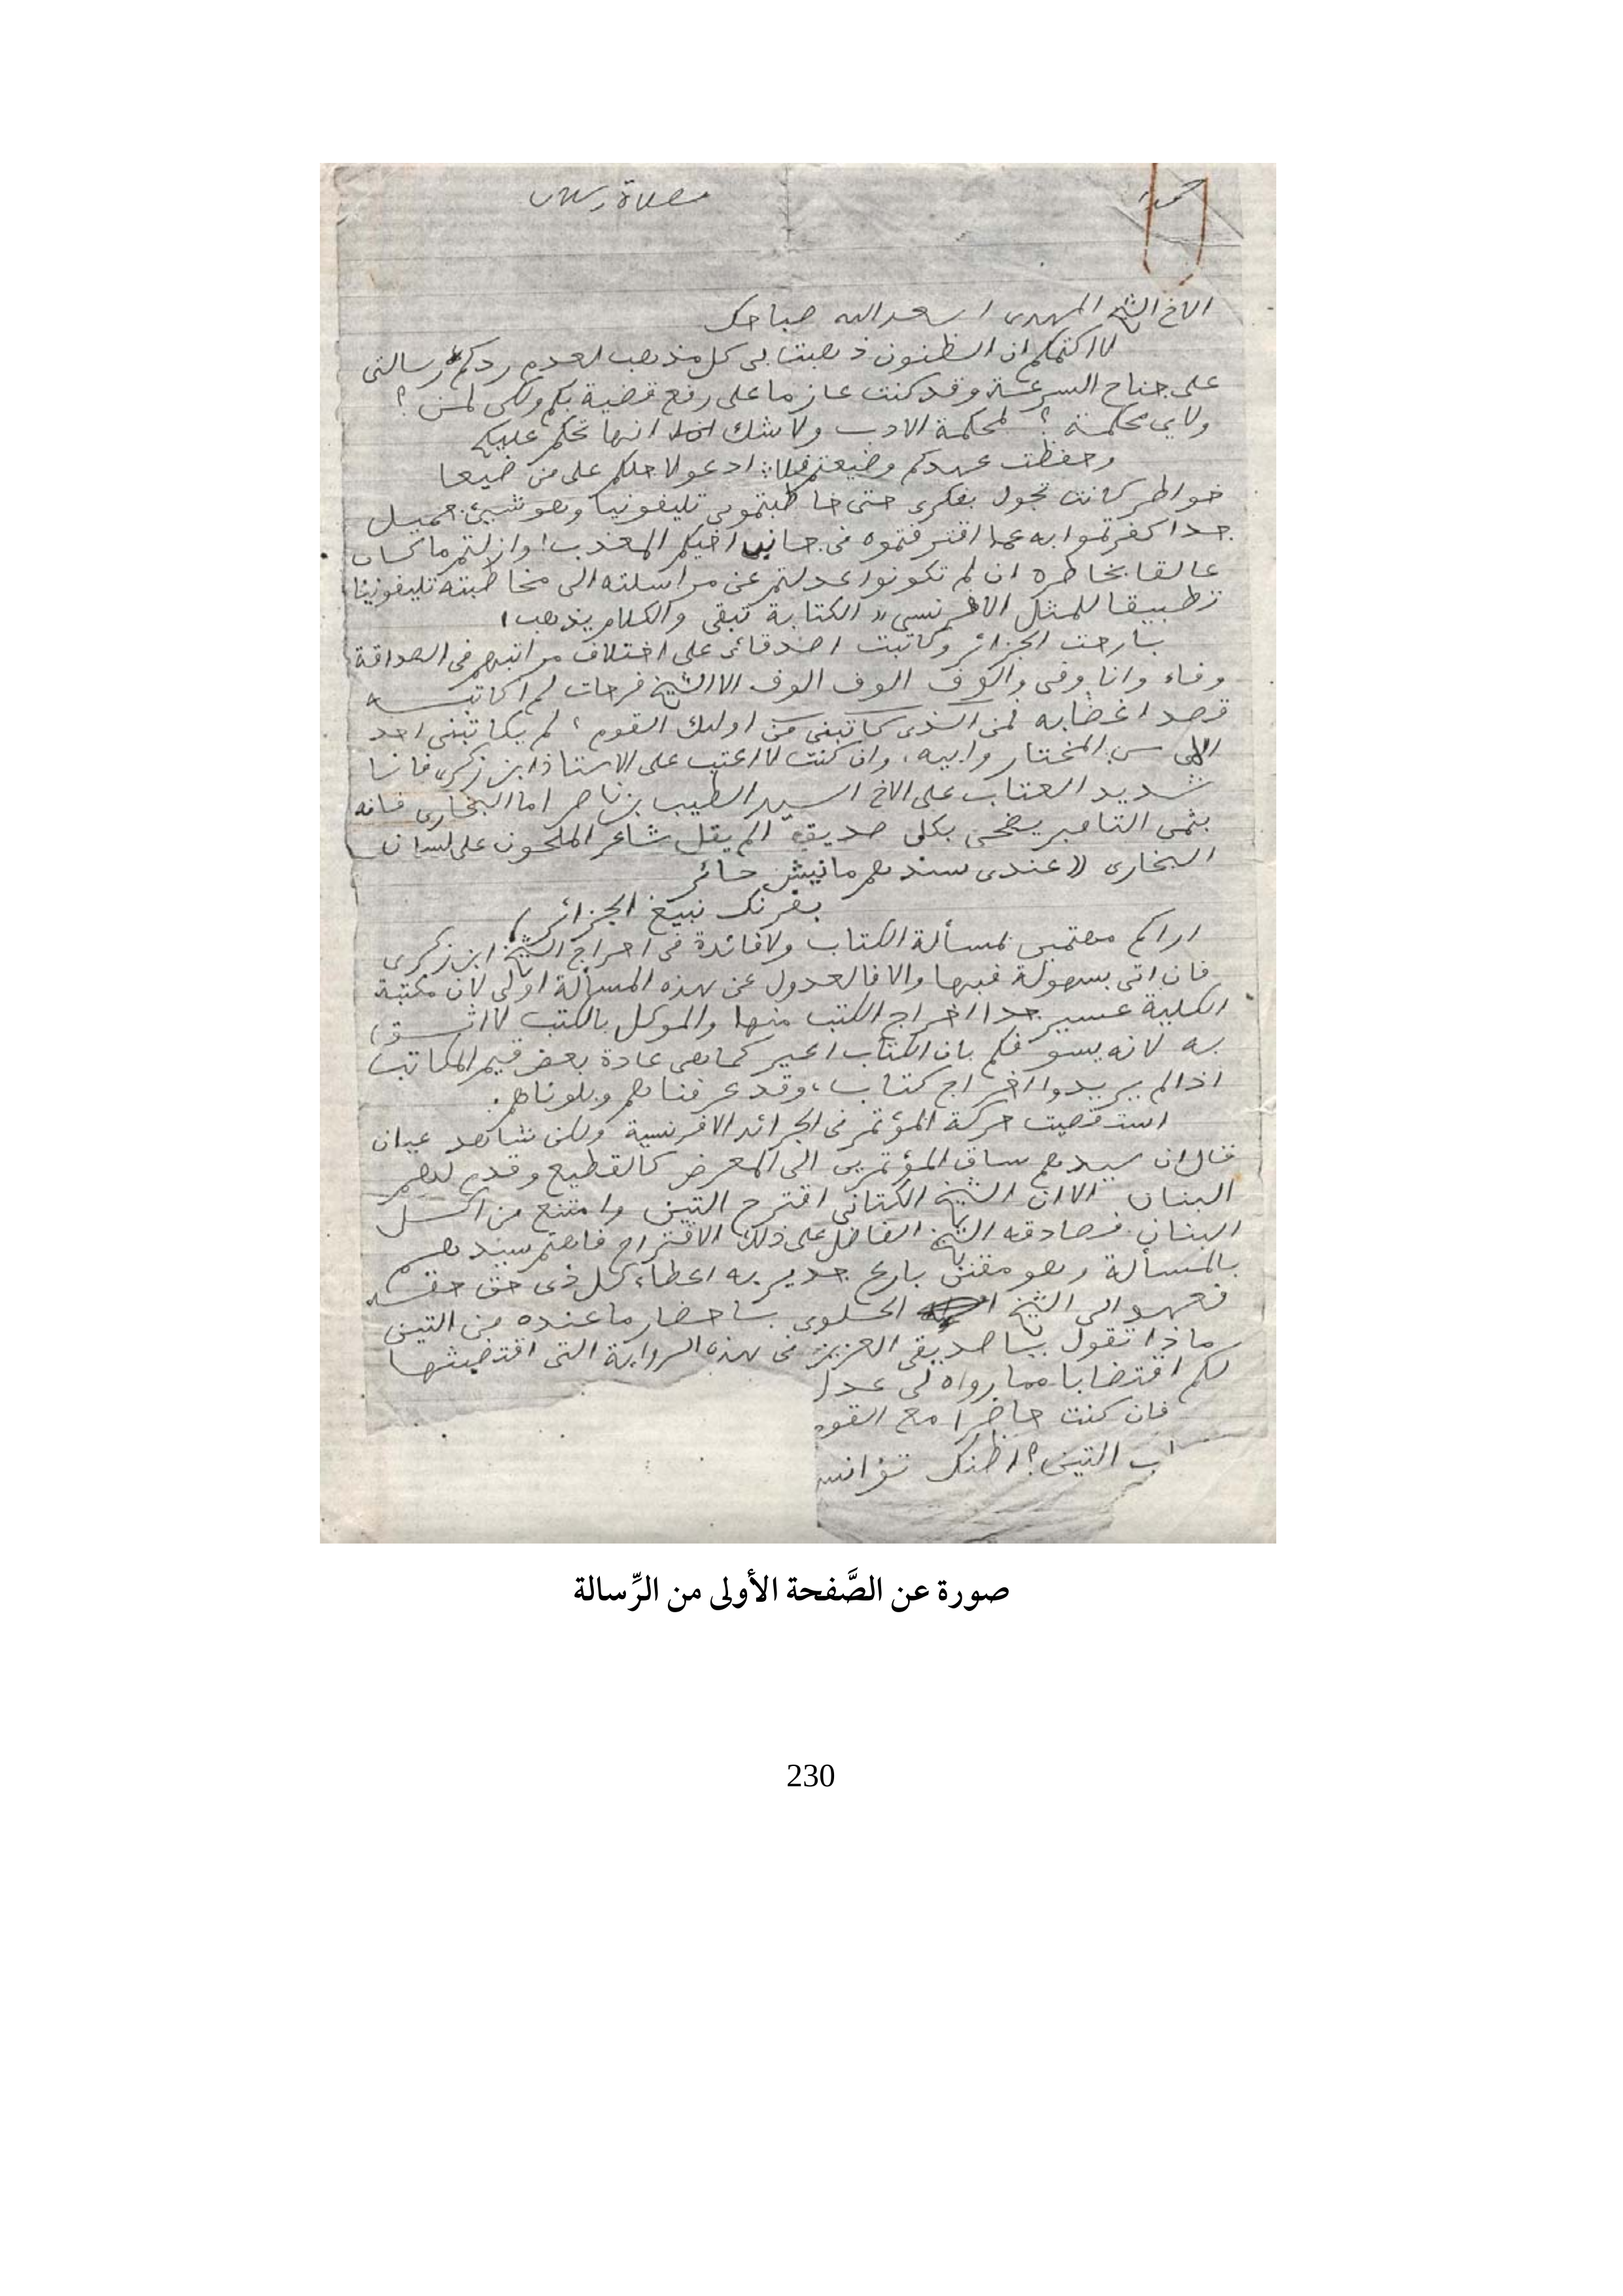 حمدا صلاة وسلاما
الاخ الشيخ المهدى اسعد الله صباحك
لا اكتمكم ان الظنون ذهبت بى كل مذهب لعدم ردكم رسالتى
على جناح السرعة وقد كنت عازما على رفع قضية بكم ولكن لمن ؟
ولاي محكمة ؟ لمحكمة الادب ولا شك انها تحكم عليكم
وحفظت عهدكم وضيعتم فلا ادعو لا حلكم على من ضيعا
خواطر كانت تجول بفكرى حتى خاطبتمونى تليفونيا وهو شيئ جميل
جدا كفرتموا به عما اقترفتموه فى جانب اخيكم المعذب! وازلتم ما كان
عالقا بخاطره ان لم تكونوا عدلتم عن مراسلته الى مخاطبته تليفونيا
تطبيقا للمثل الافرنسى « الكتابة تبقى والكلام يذهب!
بارحت الجزائر وكاتبت اصدقائى على اختلاف مراتبهم فى الصداقة
وفاء وانا وفى والوف الوف الوف الا الشيخ فرحات لم اكاتبه
قصد اغضابه لمن الذى كاتبنى من اوليك القوم ؛ لم يكاتبنى احد
الا سى المختار وابيه، وان كنت لا اعتب على الاستاذ ابن زكرى فانا
شديد العتاب على الاخ السيد الطيب بن ناصر اما البخارى فانه
بثمن التامبر يضحى بكل صديق الم يقل شاعر الملحون على لسان
البخارى «عندى سندهم مانيش حائر
بفرنك نبيع الجزائر)
اراكم مهتمين لمسألة الكتاب ولا فائدة فى احراج الشيخ ابن زكرى
فان اتى بسهولة فبها والا فالعدول عن هذه المسألة اولى لان مكتبة
الكلية عسير جدا اخراج الكتب منها والموكل بالكتب لا اثق
به لانه يسوفكم بان الكتاب اعير كما هى عادة بعض قيمى المكاتب
اذا لم يريدوا اخراج كتاب، وقد عرفناهم وبلوناهم.
استقصيت حركة المؤتمر فى الجرائد الافرنسية ولكن شاهد عيان
قال ان سيدهم ساق المؤتمرين الى المعرض كالقطيع وقدم لهم
البنان الا ان الشيخ الكتانى اقترح التين وامتنع من اكل
البنان. فصادقه الشيخ الفاضل على ذلك الاقتراح فاهتم سيدهم
بالمسألة وهو مقنن بارع جدير به اعطاء كل ذى حق حقه
فعهدوا الى الشيخ الحلوى باحضار ما عنده من التين
ماذا تقول يا صديقى العزيز فى هذه الرواية التى اقتضبتها
لكم اقتضابا مما رواه لى عدل
فان كنت حاضرا مع القوم
التين؟ اظنك
صورة عن الصَّفحة الأولى من الرِّسالة
230